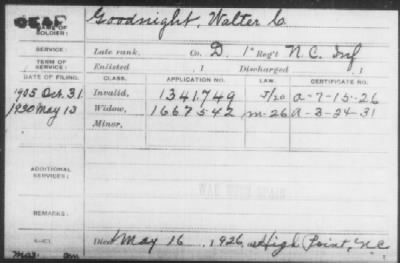 DEAF
NAME OF SOLDIER: Goodnight, Walter C.
SERVICE: Late rank, Co. D. 1" Reg't N.C. Inf
TERM OF SERVICE: Enlisted , 1 Discharged , 1
DATE OF FILING. CLASS. APPLICATION NO. LAW. CERTIFICATE NO.
1905 Oct. 31 Invalid, 1341.749 a-7-15-26
1930 May 13 Widow, 1667542 m-26 a-3-24-31
Minor,
ADDITIONAL SERVICES:
REMARKS:
Died May 16, 1926, at High Point, N.C.